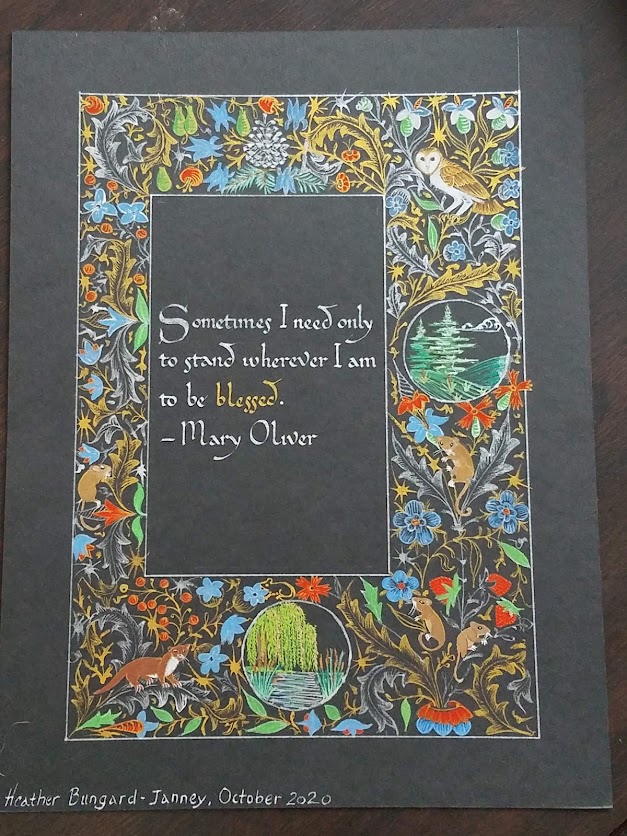 Sometimes I need only
to stand wherever I am
to be blessed.
- Mary Oliver
Heather Bungard-Janney, October 2020